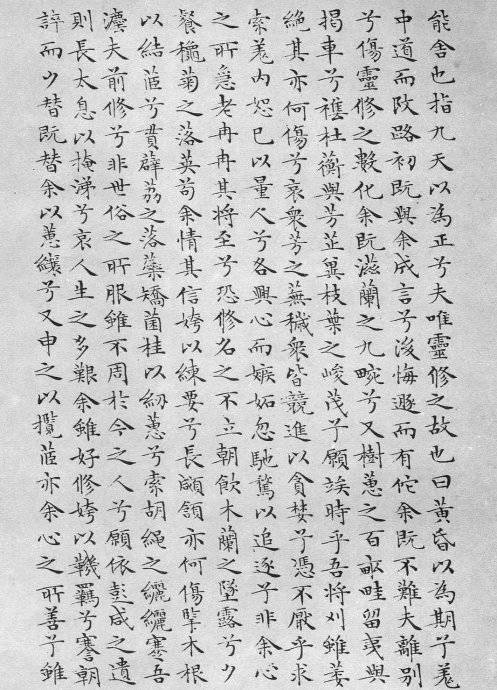 能舍也指九天以為正兮夫唯靈修之故也曰黃昏以為期兮羌
中道而改路初既與余成言兮後悔遯而有佗余既不難夫離別
兮傷靈修之數化余既滋蘭之九畹兮又樹蕙之百畝畦留夷與
揭車兮雜杜蘅與芳芷冀枝葉之峻茂兮願竢時乎吾將刈雖萎
絕其亦何傷兮哀衆芳之蕪穢衆皆競進以貪婪兮憑不厭乎求
索羌內恕己以量人兮各興心而嫉妬忽馳騖以追逐兮非余心
之所急老冉冉其將至兮恐修名之不立朝飲木蘭之墜露兮夕
餐穐菊之落英苟余情其信姱以練要兮長顑頷亦何傷擥木根
以結茝兮貫薜荔之落蘂矯菌桂以紉蕙兮索胡繩之纚纚謇吾
灋夫前修兮非世俗之所服雖不周於今之人兮願依彭咸之遺
則長太息以掩涕兮哀人生之多艱余雖好修姱以鞿羈兮謇朝
誶而夕替既替余以蕙纕兮又申之以攬茝亦余心之所善兮雖